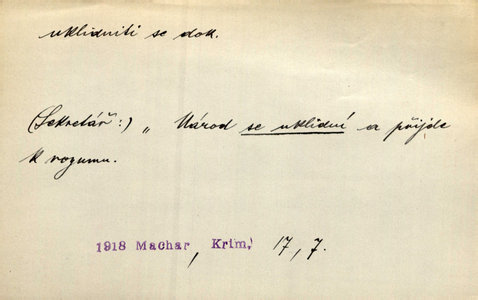 uklidniti se dok.
(Sekretář:) „ Národ se uklidní a přijde
k rozumu.
1918 Machar, Krim, 17, 7.